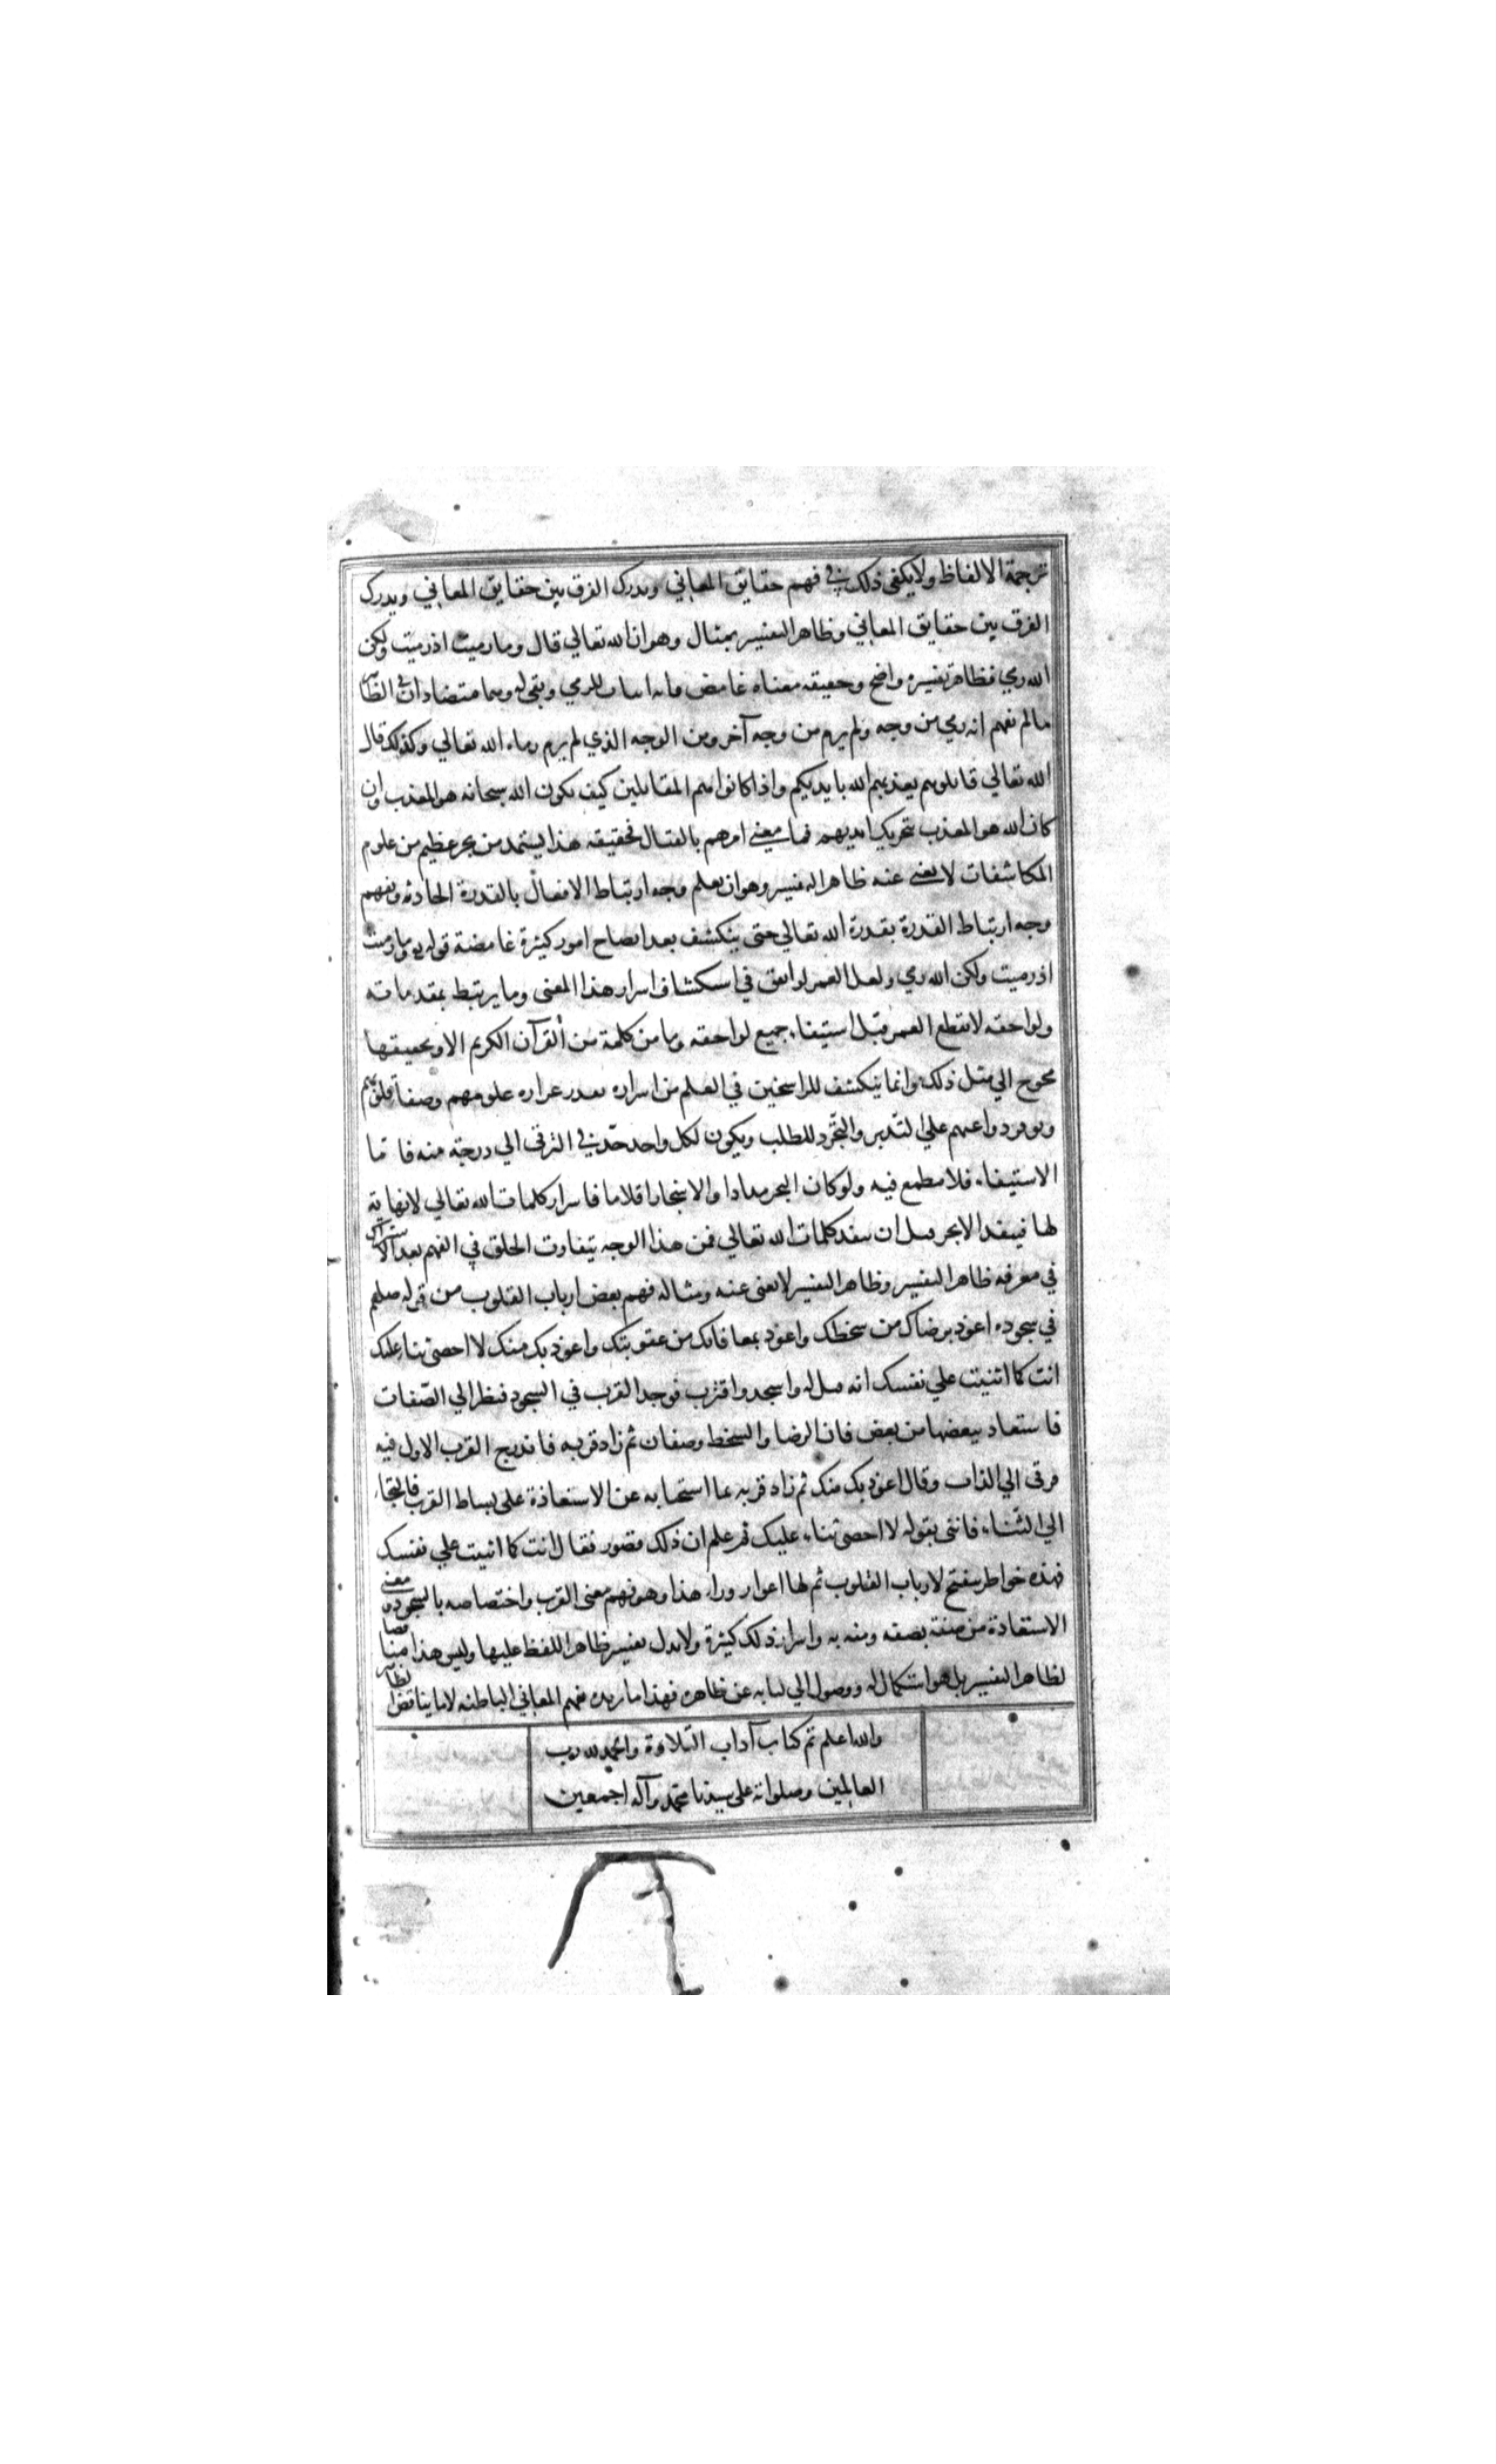 ترجمة الالفاظ ولا يكفى ذلك في فهم حقايق المعاني ويدرك الفرق بين حقايق المعاني ويدرك
الفرق بين حقايق المعاني وظاهر التفسير بمثال وهو ان الله تعالي قال وما رميت اذ رميت ولكن
الله رمي فظاهر تفسيره واضح وحقيقه معناه غامض فانه اثبات للرمي ونفي له وهما متضادان في الظاهر
مالم نفهم انه رمي من وجه ولم يرم من وجه آخر ومن الوجه الذي لم يرم رماه الله تعالي وكذلك قال
الله تعالي قاتلوهم يعذبهم الله بايديكم واذا كانوا هم المقاتلين كيف يكون الله سبحانه هو المعذب وان
كان الله هو المعذب بتحريك ايديهم فما معني امرهم بالقتال فحقيقه هذا يستمد من بحر عظيم من علوم
المكاشفات لا يغني عنه ظاهر التفسير وهو ان يعلم وجه ارتباط الافعال بالقدرة الحادثه ونفهم
وجه ارتباط القدرة بقدرة الله تعالي حتى ينكشف بعد ايضاح امور كثيرة غامضة قوله وما رميت
اذ رميت ولكن الله رمي ولعل العمر لو انفق في استكشاف اسرار هذا المعنى وما يرتبط بمقدماته
ولواحقه لا نقطع العمر قبل استيفاء جميع لواحقه وما من كلمة من القرآن الكريم الا وتحقيقها
محوج الي مثل ذلك وانما ينكشف للراسخين في العلم من اسراره بقدر غزاره علومهم وصفا قلوبهم
وتوفر دواعيهم علي التدبر والتجرد للطلب ويكون لكل واحد حدّ في الترقى الي درجة منه فاما
الاستيفاء فلا مطمع فيه ولو كان البحر مدادا والاشجار اقلاما فاسرار كلمات الله تعالي لا نهاية
لها فينفد الابحر قبل ان تنفد كلمات الله تعالي فمن هذا الوجه يتفاوت الخلق في الفهم بعد الاشتراك
في معرفه ظاهر التفسير وظاهر التفسير لا يغنى عنه ومثاله فهم بعض ارباب القلوب من قوله صلعم
في سجوده اعوذ برضاك من سخطك واعوذ بمعافاتك من عقوبتك واعوذ بك منك لا احصى ثناء عليك
انت كما اثنيت علي نفسك انه قيل له واسجد واقترب فوجد القرب في السجود فنظر الي الصّفات
فاستعاد ببعضها من بعض فان الرضا والسخط وصفان ثم زاد قربه فاندرج القرب الاول فيه
فرقى الي الذات وقال اعوذ بك منك ثم زاد قربه بما استحيا به عن الاستعاذة على بساط القرب فالتجاء
الي الثّناء فاثنى بقوله لا احصى ثناء عليك ثم علم ان ذلك قصور فقال انت كما اثنيت علي نفسك
فهذه خواطر يفتح لارباب القلوب ثم لها اغوار وراء هذا وهو فهم معنى القرب واختصاصه بالسجود ومعنى
الاستعاذة من صفة بصفه ومنه به واسرار ذلك كثيرة ولا يدل تفسير ظاهر اللفظ عليها وليس هذا مناقضا
لظاهر التفسير بل هو استكمال له ووصول الي لبابه عن ظاهره فهذا ما نريده بفهم المعاني الباطنه لا ما يناقض الظاهر
والله اعلم تم كتاب آداب التلاوة والحمد لله رب
العالمين وصلواته على سيدنا محمد وآله اجمعين